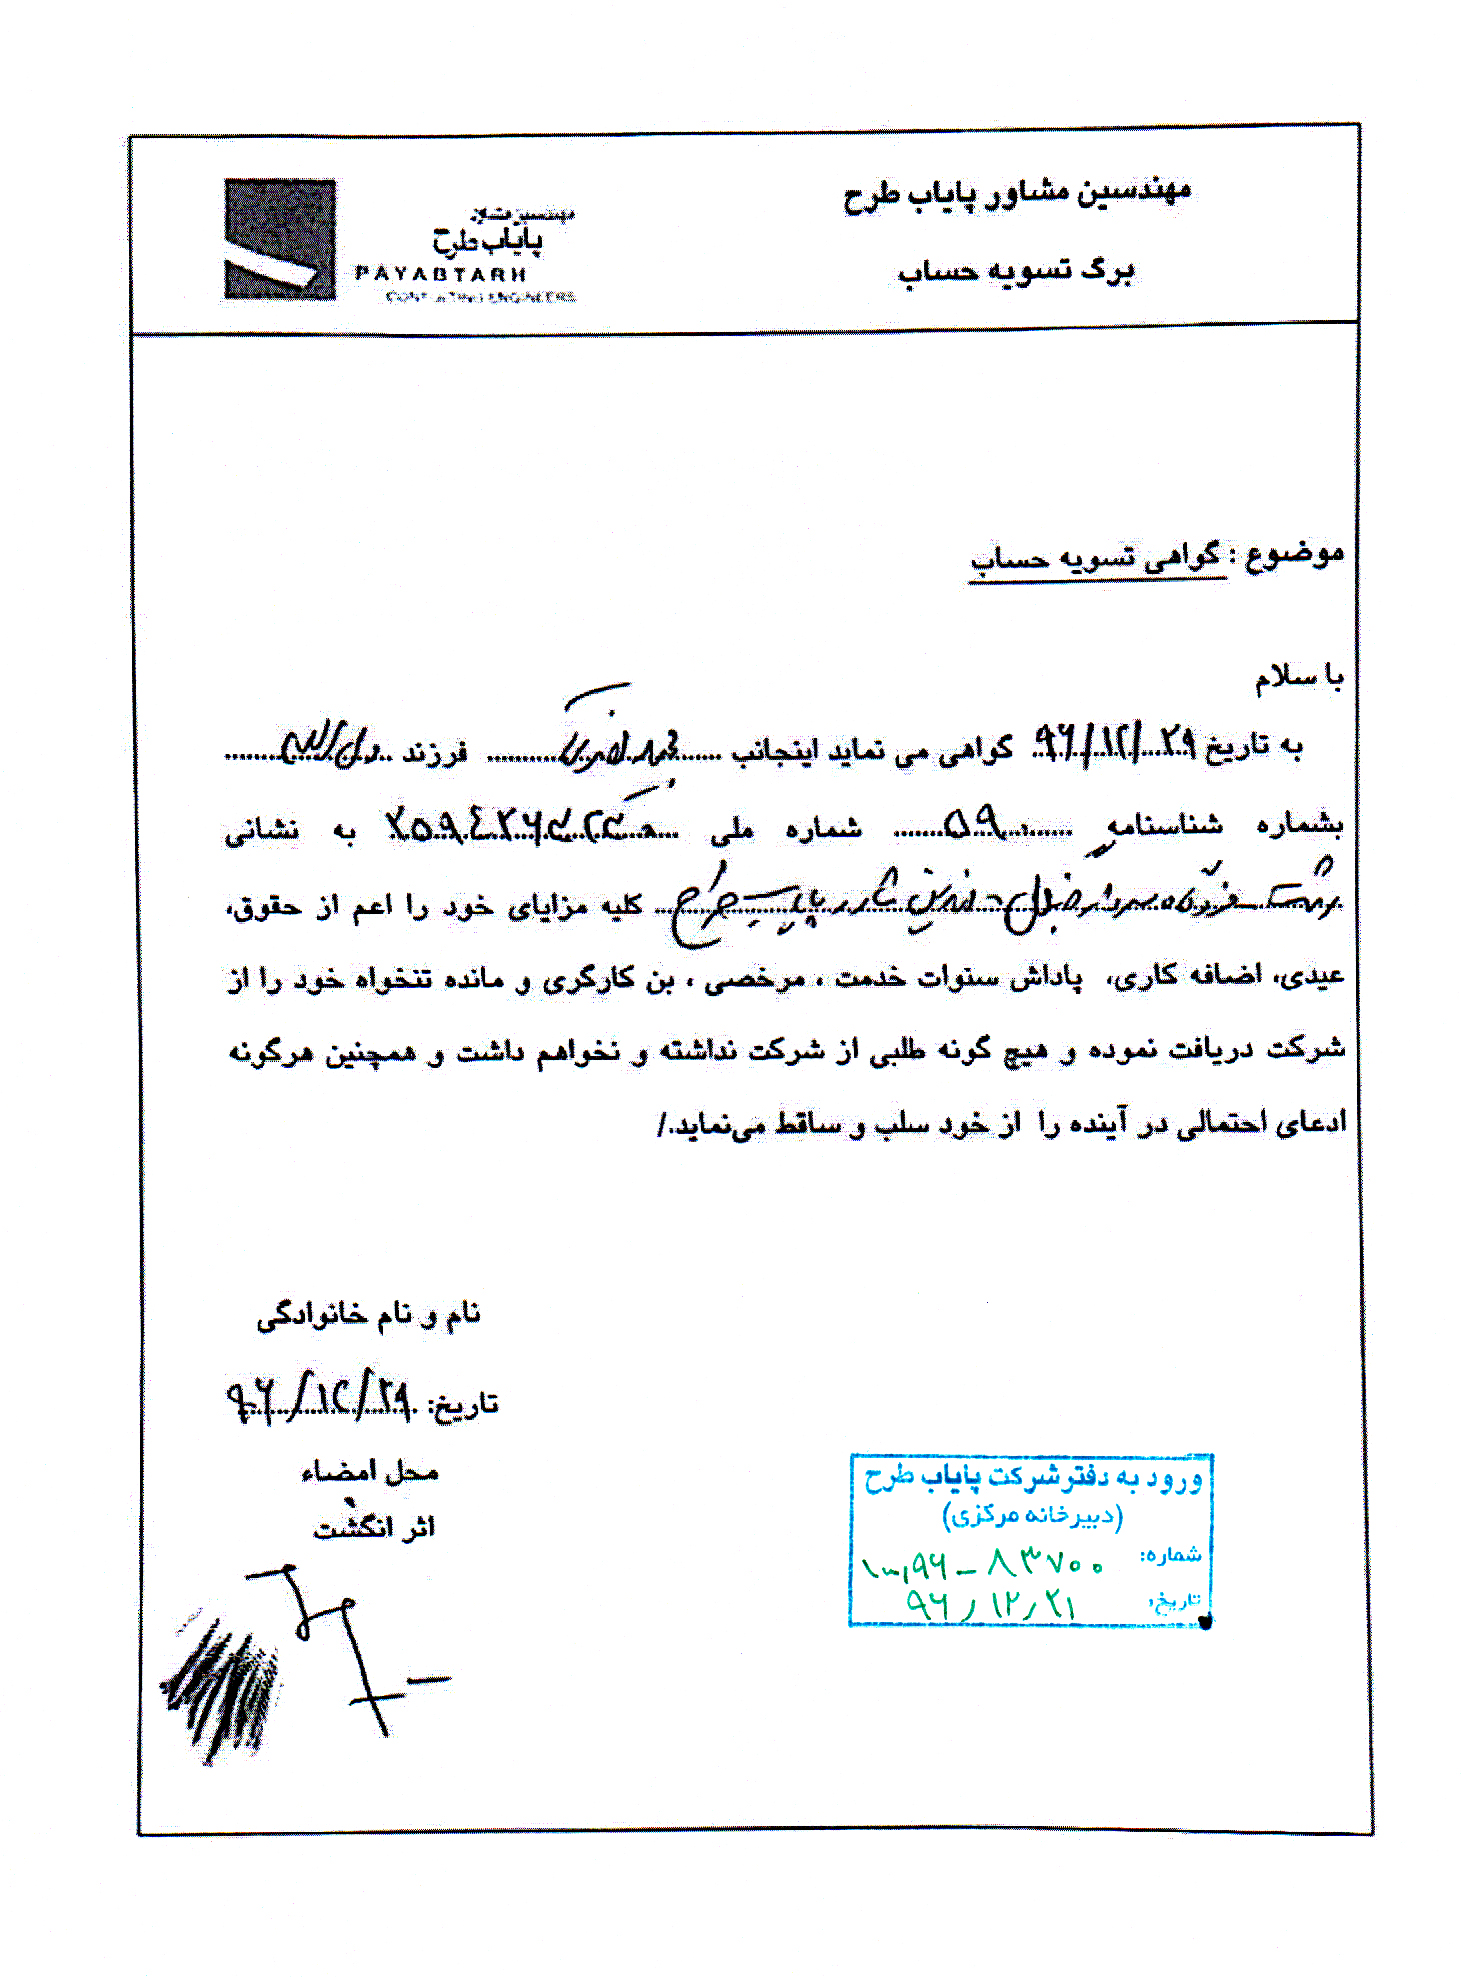 مهندسین مشاور پایاب طرح
برگ تسویه حساب
مهندسین مشاور
پایاب طرح
PAYABTARH
CONSULTING ENGINEERS
موضوع : گواهی تسویه حساب
با سلام
به تاریخ ۹۶/۱۲/۲۹ گواهی می نماید اینجانب فرزند
بشماره شناسنامه ۵۹۰ شماره ملی به نشانی
پایاب طرح کلیه مزایای خود را اعم از حقوق،
عیدی، اضافه کاری، پاداش سنوات خدمت ، مرخصی ، بن کارگری و مانده تنخواه خود را از
شرکت دریافت نموده و هیچ گونه طلبی از شرکت نداشته و نخواهم داشت و همچنین هرگونه
ادعای احتمالی در آینده را از خود سلب و ساقط می‌نماید./
نام و نام خانوادگی
تاریخ: ۹۶/۱۲/۲۹
محل امضاء
اثر انگشت
ورود به دفتر شرکت پایاب طرح
(دبیرخانه مرکزی)
شماره: ۹۶-۸۳۷۰۰
تاریخ: ۹۶/۱۲/۲۱